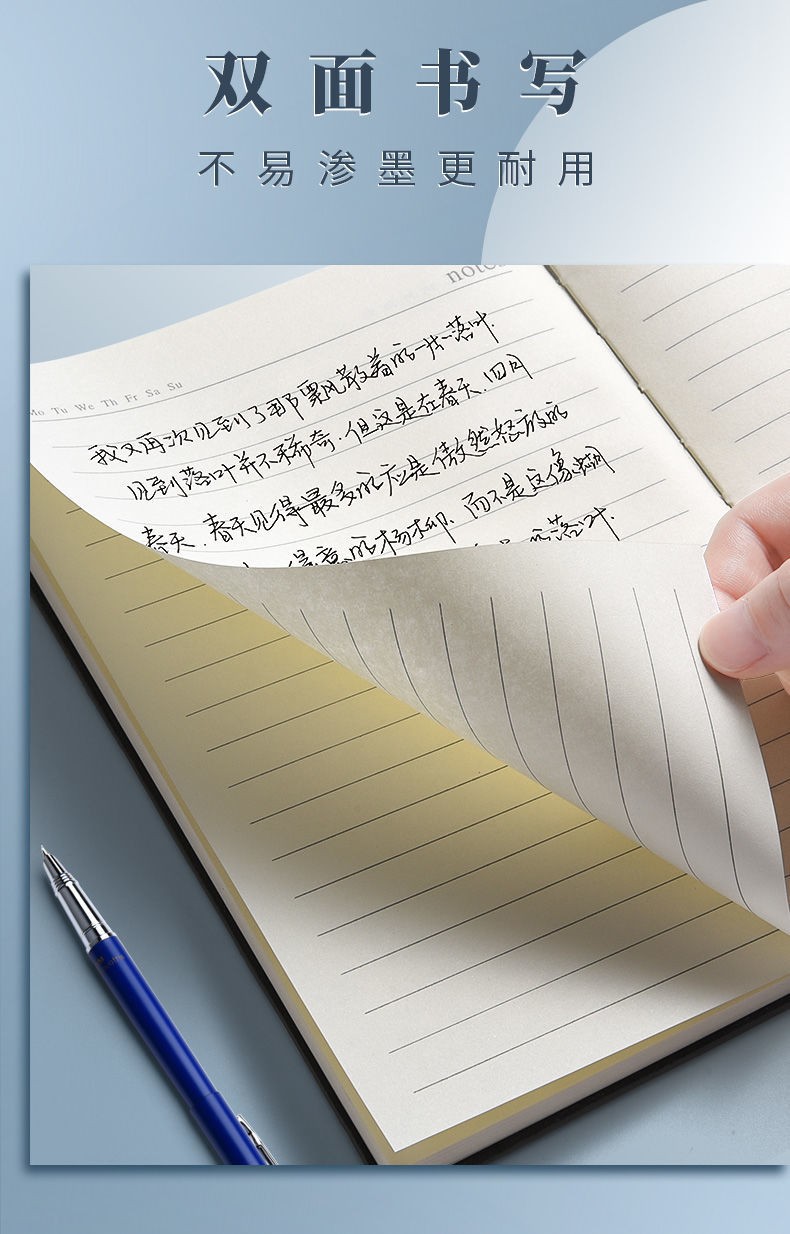 双面书写
不易渗墨更耐用
notes
Mo Tu We Th Fr Sa Su
我又再次见到了那飘风散着的一片落叶.
见到落叶并不稀奇.但这是在春天.四月
春天.春天见得最多的应是傲然怒放的
得意的杨柳.而不是这像蝴
落叶.